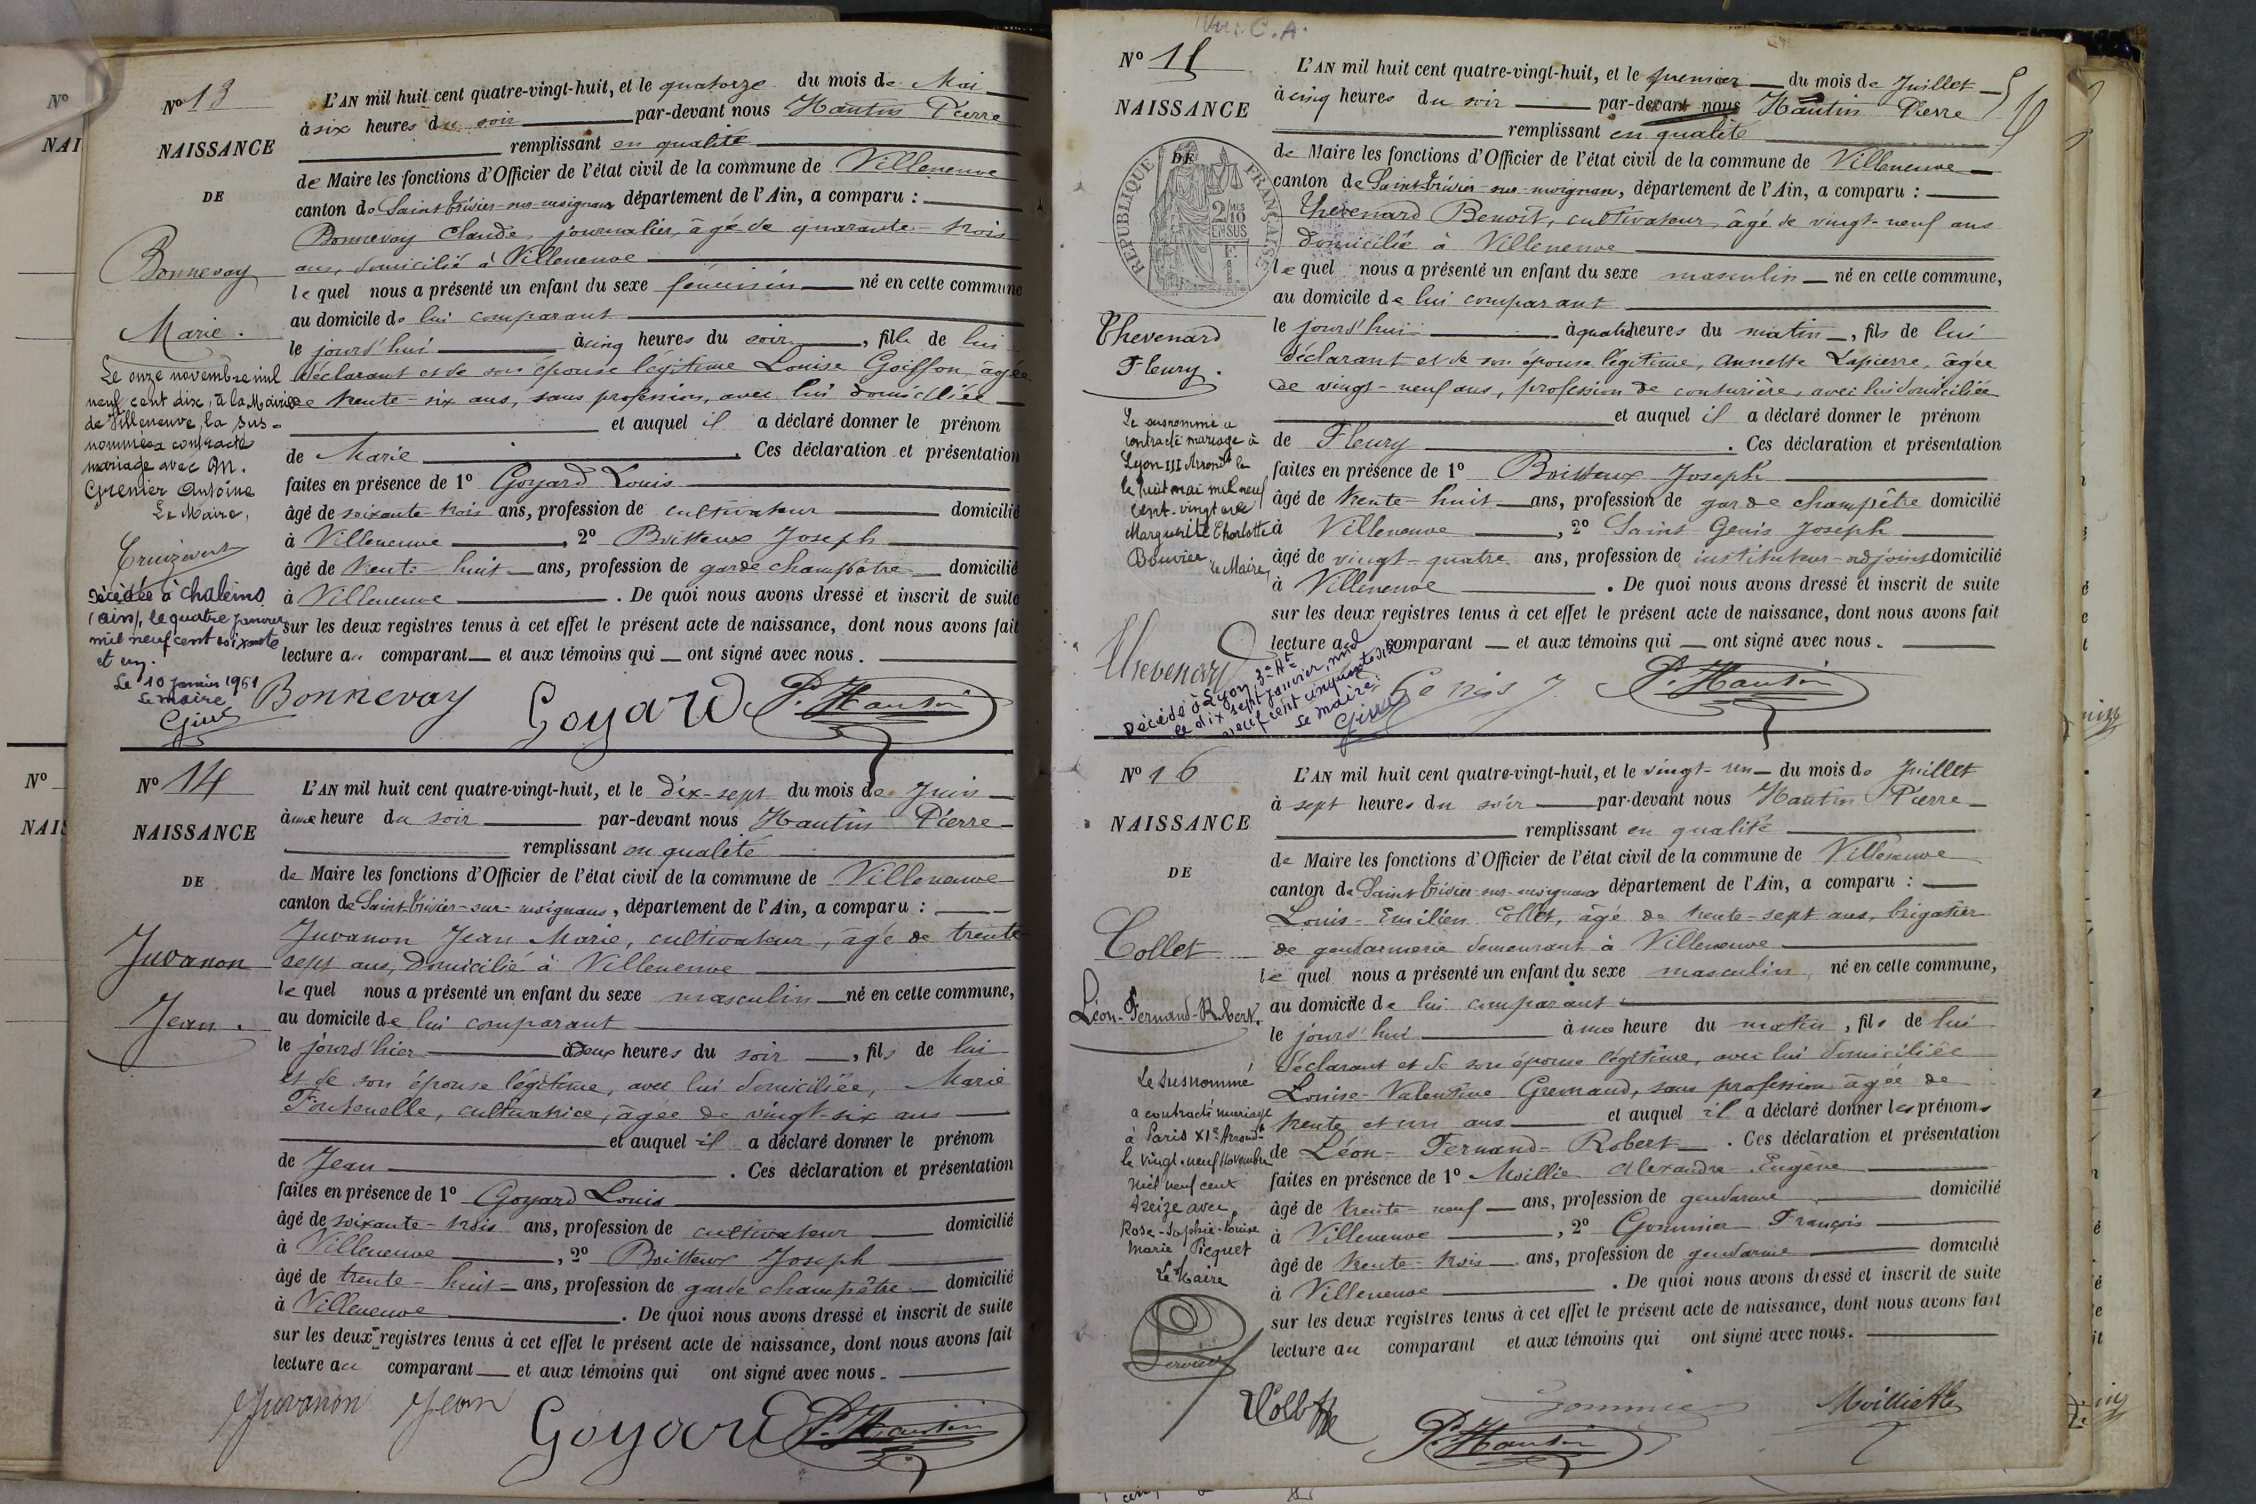 Nº 13
NAISSANCE
DE
Bonnevay
Marie.
Le onze novembre mil
neuf cent dix, à la Mairie
de Villeneuve, la sus-
nommée a contracté
mariage avec M.
Grenier Antoine
Le Maire,
Décédée à Chaleins
(Ain), le quatre janvier
mil neuf cent soixante
et un.
Le 10 janvier 1961
Le maire
L'AN mil huit cent quatre-vingt-huit, et le quatorze du mois de Mai
à six heures du soir par-devant nous Hautin Pierre
remplissant en qualité
de Maire les fonctions d'Officier de l'état civil de la commune de Villeneuve
canton de Saint-Trivier-sur-moignans département de l'Ain, a comparu :
Bonnevay Claude, journalier, âgé de quarante-trois
ans, domicilié à Villeneuve
lequel nous a présenté un enfant du sexe féminin né en cette commune
au domicile de lui comparant
le jourd'hui à cinq heures du soir, fille de lui
déclarant et de son épouse légitime Louise Goiffon, âgée
de trente-six ans, sans profession, avec lui domiciliée
et auquel il a déclaré donner le prénom
de Marie. Ces déclaration et présentation
faites en présence de 1º Goyard Louis
âgé de soixante-trois ans, profession de cultivateur domicilié
à Villeneuve, 2º Boitteux Joseph
âgé de trente-huit ans, profession de garde champêtre domicilié
à Villeneuve. De quoi nous avons dressé et inscrit de suite
sur les deux registres tenus à cet effet le présent acte de naissance, dont nous avons fait
lecture au comparant et aux témoins qui ont signé avec nous.
Bonnevay Goyard P. Hautin
Nº 14
NAISSANCE
DE
Juvanon
Jean.
L'AN mil huit cent quatre-vingt-huit, et le dix-sept du mois de Juin
à une heure du soir par-devant nous Hautin Pierre
remplissant en qualité
de Maire les fonctions d'Officier de l'état civil de la commune de Villeneuve
canton de Saint-Trivier-sur-moignans, département de l'Ain, a comparu :
Juvanon Jean Marie, cultivateur, âgé de trente
sept ans, domicilié à Villeneuve
lequel nous a présenté un enfant du sexe masculin né en cette commune,
au domicile de lui comparant
le jourd'hier à deux heures du soir, fils de lui
et de son épouse légitime, avec lui domiciliée, Marie
Fontenelle, cultivatrice, âgée de vingt-six ans
et auquel il a déclaré donner le prénom
de Jean. Ces déclaration et présentation
faites en présence de 1º Goyard Louis
âgé de soixante-trois ans, profession de cultivateur domicilié
à Villeneuve, 2º Boitteux Joseph
âgé de trente-huit ans, profession de garde champêtre domicilié
à Villeneuve. De quoi nous avons dressé et inscrit de suite
sur les deux registres tenus à cet effet le présent acte de naissance, dont nous avons fait
lecture au comparant et aux témoins qui ont signé avec nous.
Juvanon Jean Goyard P. Hautin
Nº 15
NAISSANCE
DE
RÉPUBLIQUE FRANÇAISE
Thevenard
Fleury.
Le susnommé a
contracté mariage à
Lyon III Arrondt le
le huit mai mil neuf
cent-vingt avec
Marguerite Charlotte
Bouvier
Le Maire,
L'AN mil huit cent quatre-vingt-huit, et le premier du mois de Juillet
à cinq heures du soir par-devant nous Hautin Pierre
remplissant en qualité
de Maire les fonctions d'Officier de l'état civil de la commune de Villeneuve
canton de Saint-Trivier-sur-moignans, département de l'Ain, a comparu :
Thevenard Benoît, cultivateur, âgé de vingt-neuf ans
domicilié à Villeneuve
lequel nous a présenté un enfant du sexe masculin né en cette commune,
au domicile de lui comparant
le jourd'hui à quatre heures du matin, fils de lui
déclarant et de son épouse légitime, Annette Lapierre, âgée
de vingt-neuf ans, profession de couturière, avec lui domiciliée
et auquel il a déclaré donner le prénom
de Fleury. Ces déclaration et présentation
faites en présence de 1º Boitteux Joseph
âgé de trente-huit ans, profession de garde champêtre domicilié
à Villeneuve, 2º Saint Genis Joseph
âgé de vingt-quatre ans, profession de instituteur-adjoint domicilié
à Villeneuve. De quoi nous avons dressé et inscrit de suite
sur les deux registres tenus à cet effet le présent acte de naissance, dont nous avons fait
lecture au comparant et aux témoins qui ont signé avec nous.
Thevenard Genis J. P. Hautin
Décédé à Lyon, 3e At
le dix sept janvier, mil
neuf cent cinquante six
Le maire:
Nº 16
NAISSANCE
DE
Collet
Léon-Fernand-Robert.
Le susnommé
a contracté mariage
à Paris XIe Arrondt
le vingt-neuf Novembre
mil neuf cent
treize avec
Rose-Sophie-Louise
Marie Picquet
Le Maire
L'AN mil huit cent quatre-vingt-huit, et le vingt-un du mois de Juillet
à sept heures du soir par-devant nous Hautin Pierre
remplissant en qualité
de Maire les fonctions d'Officier de l'état civil de la commune de Villeneuve
canton de Saint-Trivier-sur-moignans département de l'Ain, a comparu :
Louis-Emilien Collet, âgé de trente-sept ans, brigadier
de gendarmerie demeurant à Villeneuve
lequel nous a présenté un enfant du sexe masculin né en cette commune,
au domicile de lui comparant
le jourd'hui à une heure du matin, fils de lui
déclarant et de son épouse légitime, avec lui domiciliée
Louise-Valentine Gremaud, sans profession âgée de
trente et un ans et auquel il a déclaré donner les prénoms
de Léon-Fernand-Robert. Ces déclaration et présentation
faites en présence de 1º Moillie Alexandre-Eugène
âgé de trente-neuf ans, profession de gendarme domicilié
à Villeneuve, 2º Gommier François
âgé de trente-trois ans, profession de gendarme domicilié
à Villeneuve. De quoi nous avons dressé et inscrit de suite
sur les deux registres tenus à cet effet le présent acte de naissance, dont nous avons fait
lecture au comparant et aux témoins qui ont signé avec nous.
Collet P. Hautin Gommier